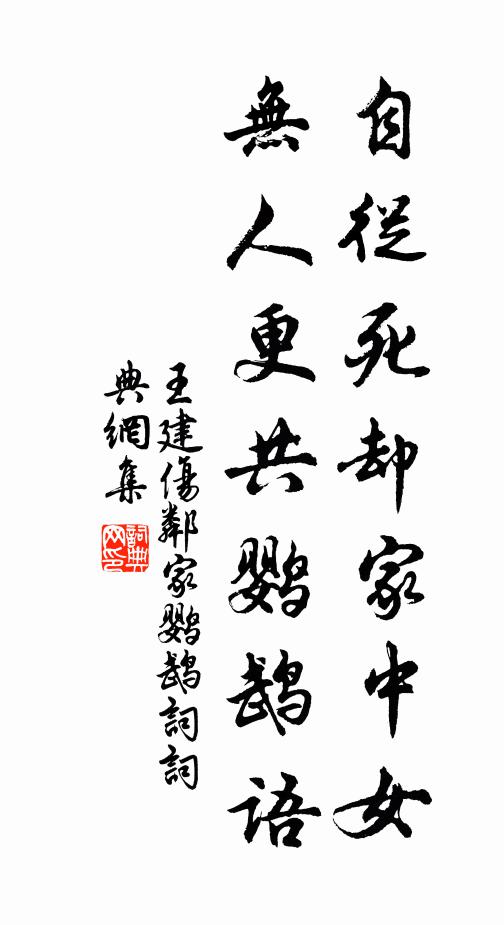 自從死却家中女
無人更共鹦鵡语
王建傷鄰家鹦鵡詞詞
典網集
詞典网印